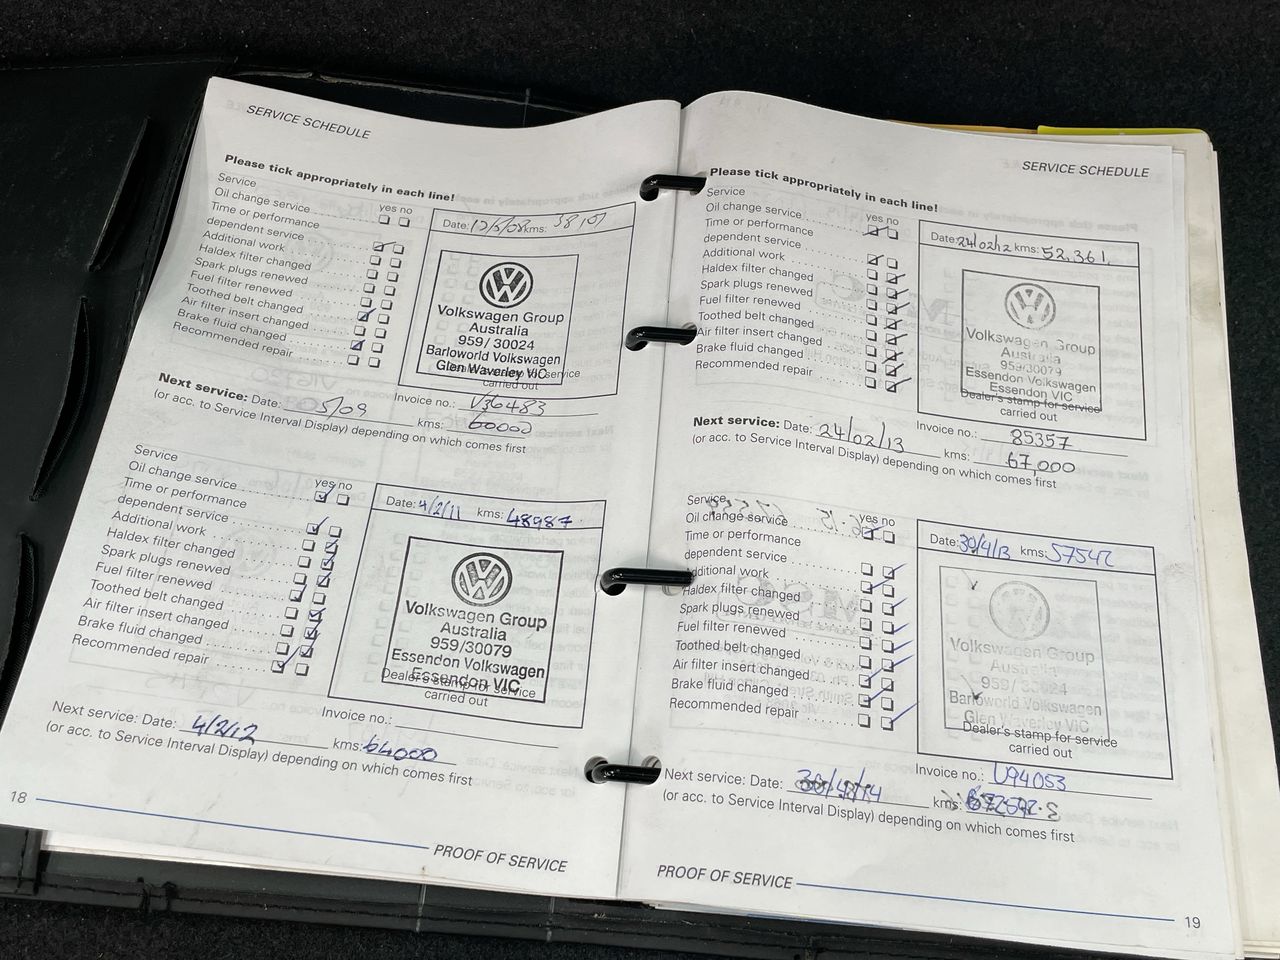 SERVICE SCHEDULE
Please tick appropriately in each line!
Service
yes no
Oil change service
Time or performance
dependent service
Additional work
Haldex filter changed
Spark plugs renewed
Fuel filter renewed
Toothed belt changed
Air filter insert changed
Brake fluid changed
Recommended repair
Date: 12/5/08 kms:
Volkswagen Group
Australia
959/ 30024
Barloworld Volkswagen
Glen Waverley VIC
carried out
Next service: Date: 5/09
Invoice no.: V36483
kms: 60000
(or acc. to Service Interval Display) depending on which comes first
Service
yes no
Oil change service
Time or performance
dependent service
Additional work
Haldex filter changed
Spark plugs renewed
Fuel filter renewed
Toothed belt changed
Air filter insert changed
Brake fluid changed
Recommended repair
Date: 4/2/11 kms: 48987.
Volkswagen Group
Australia
959/30079
Essendon Volkswagen
Essendon VIC
Dealer's stamp for service
carried out
Next service: Date: 4/2/12
Invoice no.:
kms: 64000
(or acc. to Service Interval Display) depending on which comes first
18
PROOF OF SERVICE
SERVICE SCHEDULE
Please tick appropriately in each line!
Service
yes no
Oil change service
Time or performance
dependent service
Additional work
Haldex filter changed
Spark plugs renewed
Fuel filter renewed
Toothed belt changed
Air filter insert changed
Brake fluid changed
Recommended repair
Date: 24/02/12 kms: 52,361.
Volkswagen Group
Australia
959/30079
Essendon Volkswagen
Essendon VIC
Dealer's stamp for service
carried out
Next service: Date: 24/02/13
Invoice no.: 85357
kms: 67,000
(or acc. to Service Interval Display) depending on which comes first
Service
yes no
Oil change service
Time or performance
dependent service
Additional work
Haldex filter changed
Spark plugs renewed
Fuel filter renewed
Toothed belt changed
Air filter insert changed
Brake fluid changed
Recommended repair
Date: 30/4/13 kms: 57542
Volkswagen Group
Australia
959/ 30024
Barloworld Volkswagen
Glen Waverley VIC
Dealer's stamp for service
carried out
Invoice no.: U94053
Next service: Date: 30/4/14
kms:
(or acc. to Service Interval Display) depending on which comes first
PROOF OF SERVICE
19